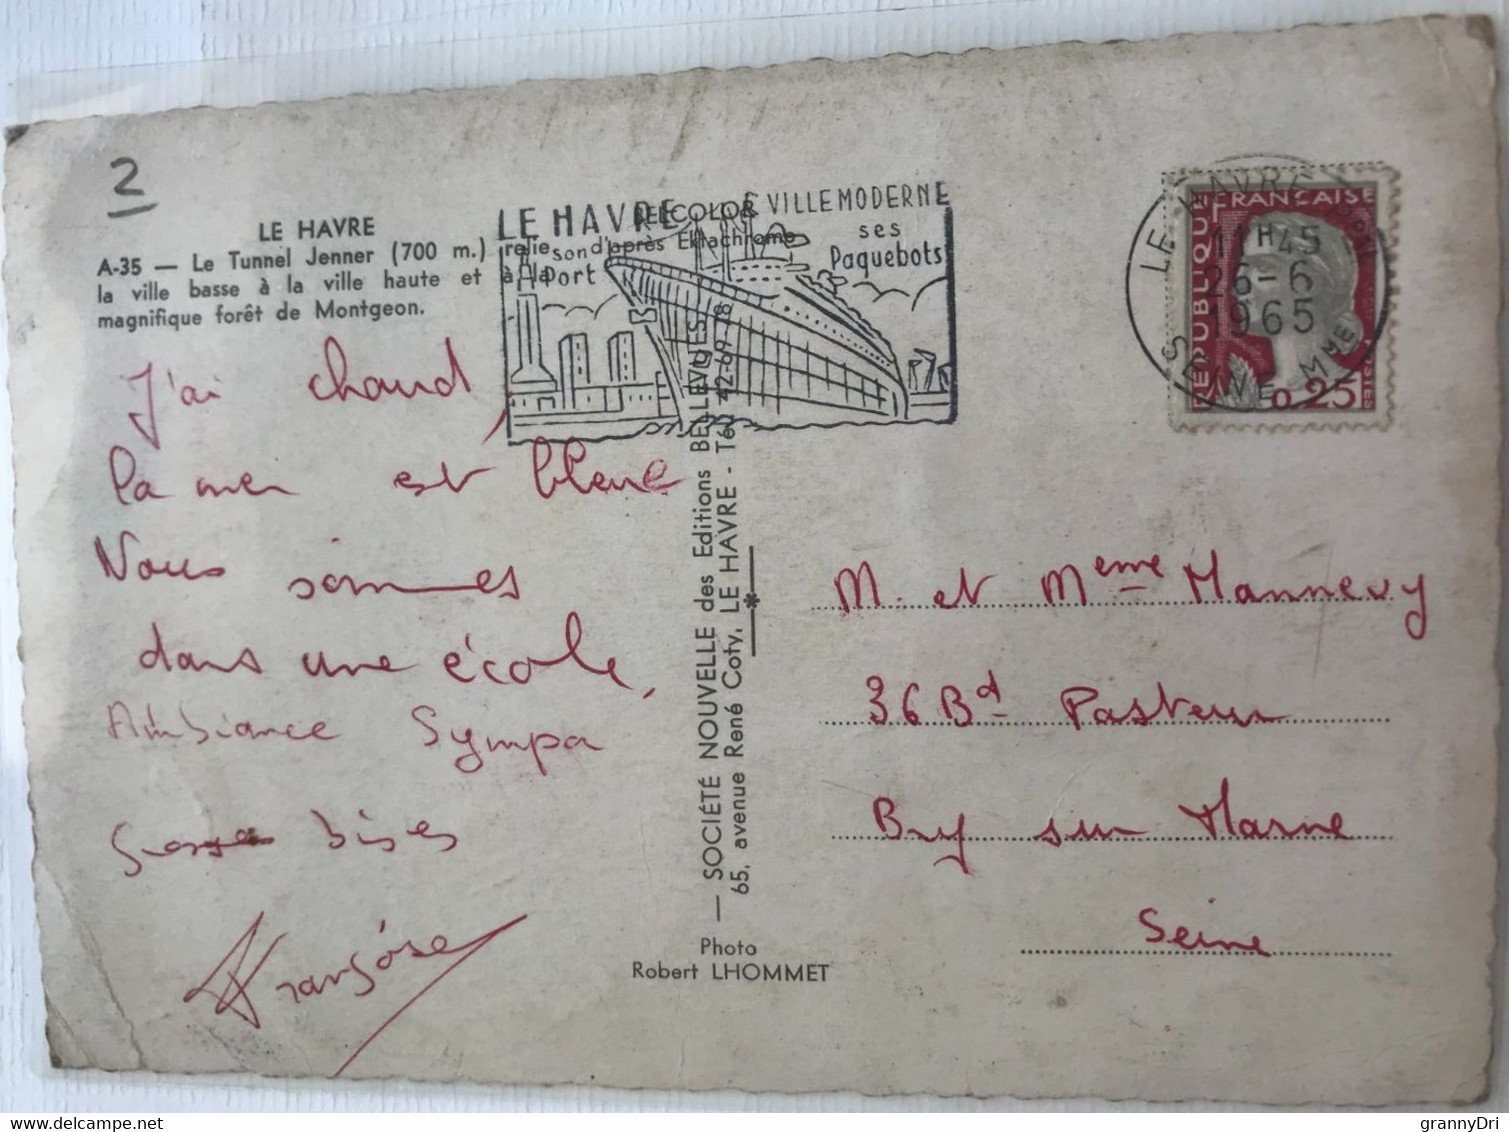 2
LE HAVRE
A-35 — Le Tunnel Jenner (700 m.) relie
la ville basse à la ville haute et à la
magnifique forêt de Montgeon.
LE HAVRE
VILLE MODERNE
son
Port
ses
Paquebots
BELCOLOR
d'après Ektachrome
LE HAVRE
11H45
26-6
1965
SEINE MME
REPUBLIQUE FRANÇAISE
0,25
J'ai chaud,
la mer est bleue
Nous sommes
dans une école,
Ambiance Sympa
Grosses bises
Françoise
— SOCIÉTÉ NOUVELLE des Editions BELLEVUES
65, avenue René Coty, LE HAVRE - Tél. 42-69-78
Photo
Robert LHOMMET
M. et Meme Mannevy
36 Bd Pasteur
Bry sur Marne
Seine
grannyDri